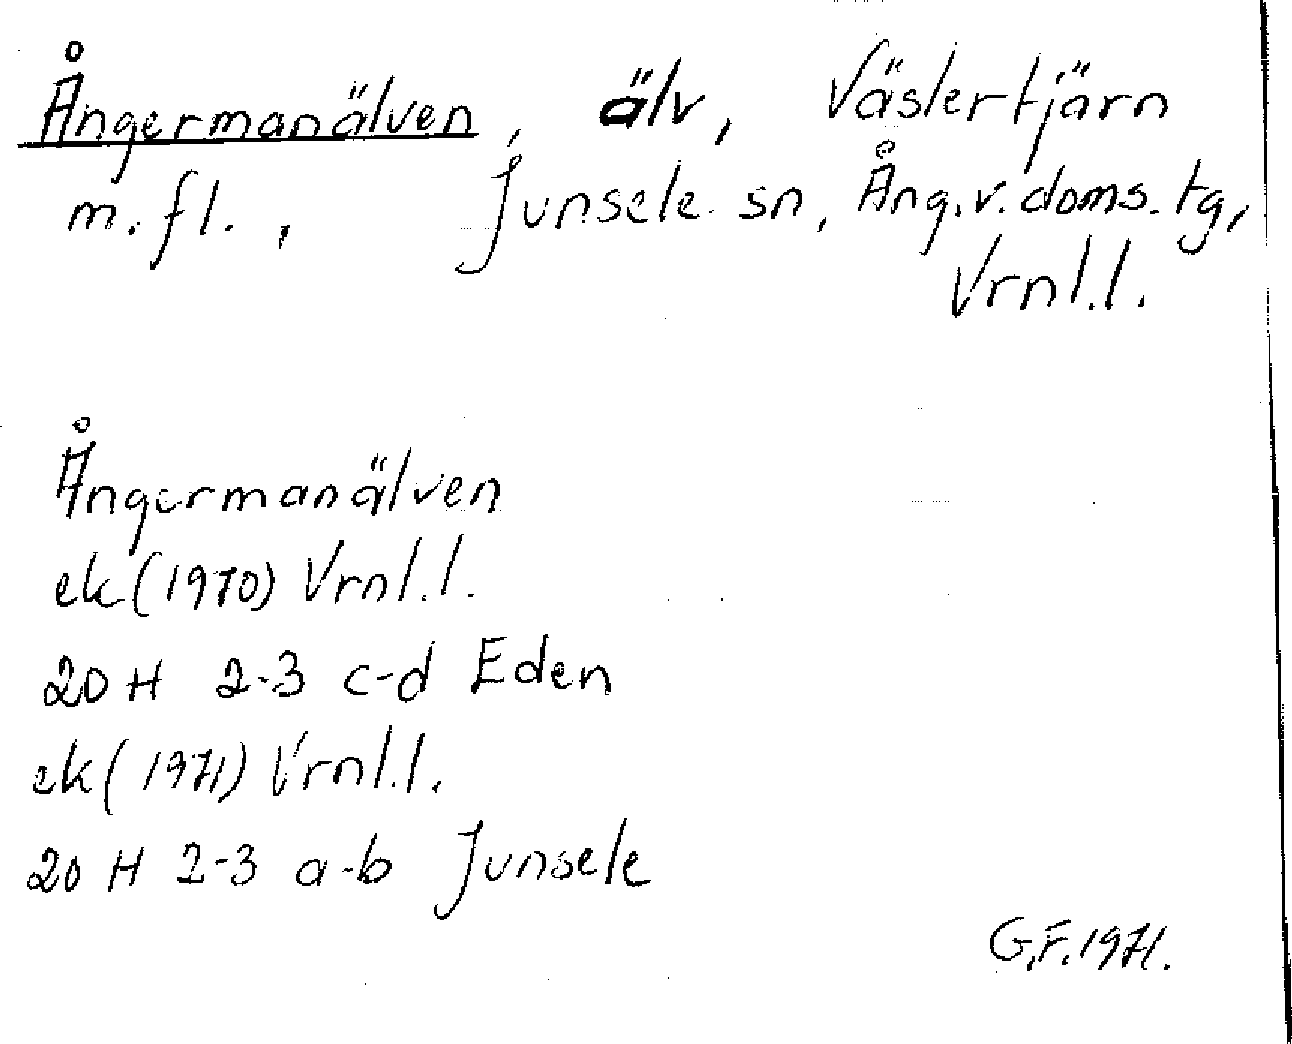 Ångermanälven, älv, Västertjärn
m.fl., Junsele sn, Ång.v.doms.tg,
Vrnl.l.
Ångermanälven
ek(1970) Vrnl.l.
20 H 2-3 c-d Eden
ek(1971) Vrnl.l.
20 H 2-3 a-b Junsele
G.F.1971.